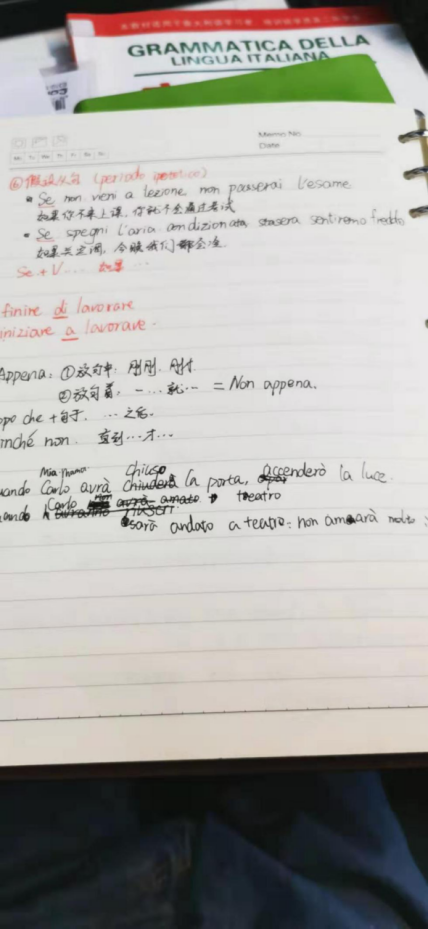 GRAMMATICA DELLA
LINGUA ITALIANA
Memo No.
Date
Mo Tu We Th Fr Sa Su
⑥假设从句 (periodo ipotetico)
• Se non vieni a lezione, non passerai l'esame.
如果你不来上课，你就不会通过考试
• Se spegni l'aria condizionata, stasera sentiremo freddo
如果关空调，今晚我们都会冷.
Se + V... 如果...
finire di lavorare
iniziare a lavorare.
Appena: ①放句中: 刚刚. 刚才
②放句首, 一...就... = Non appena.
opo che + 句子. ...之后.
inché non. 直到...才...
Mia mamma chiuso
uando Carlo avrà chiuderà la porta, accenderò la luce.
Carlo avrà amato teatro
sarà andato a teatro: non amarà molto